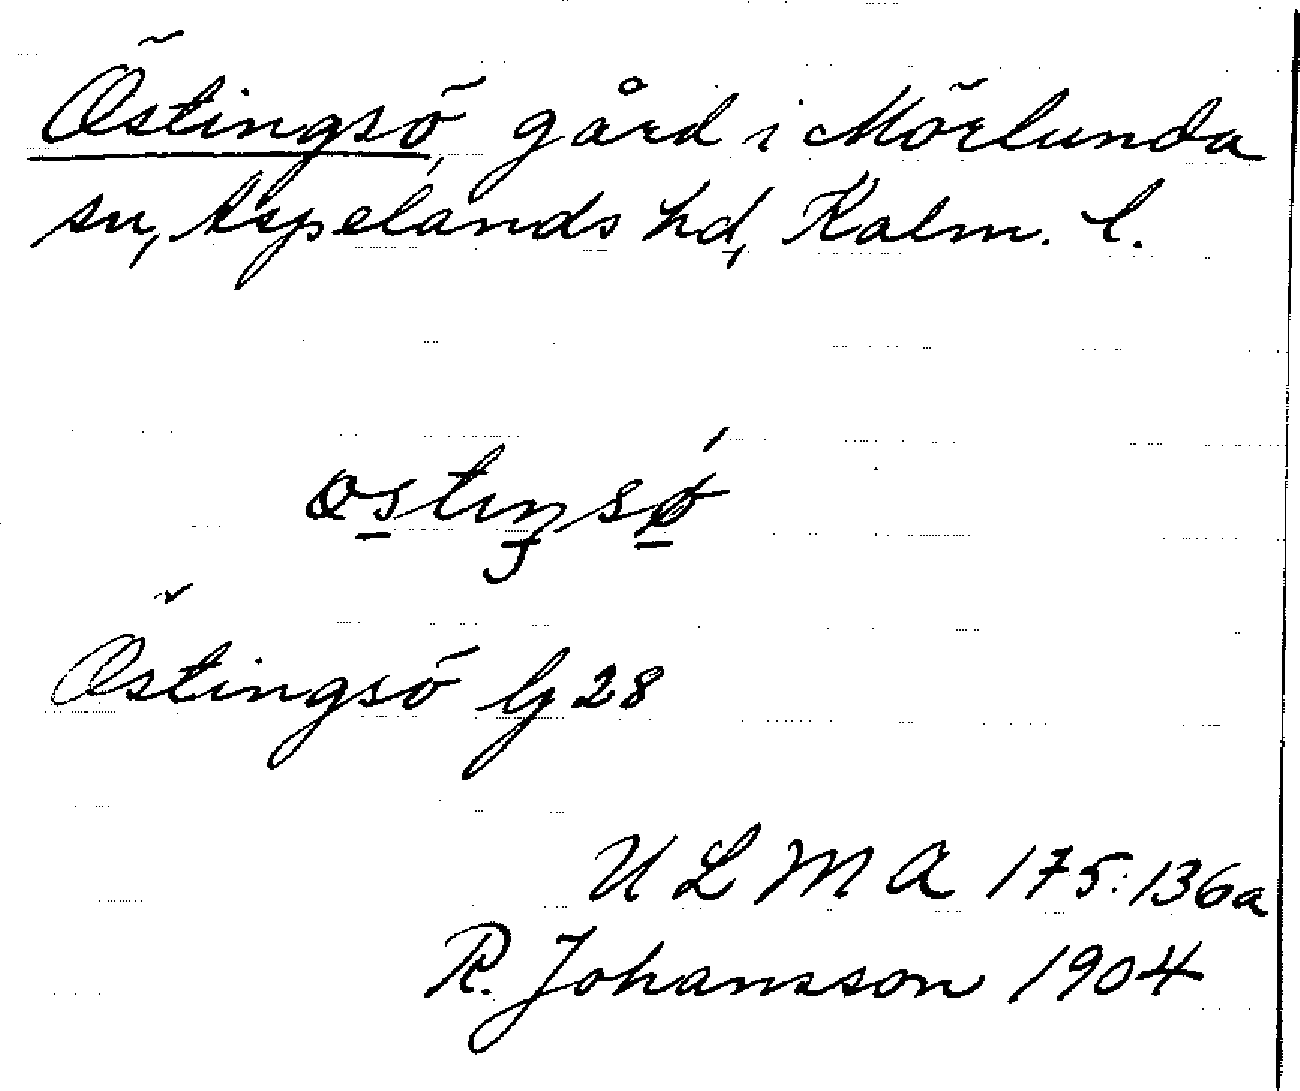 Östingsö, gård i Mörlunda
sn, Aspelands hd, Kalm. l.
Östingsö lg 28
ULMA 175:136a
R. Johansson 1904